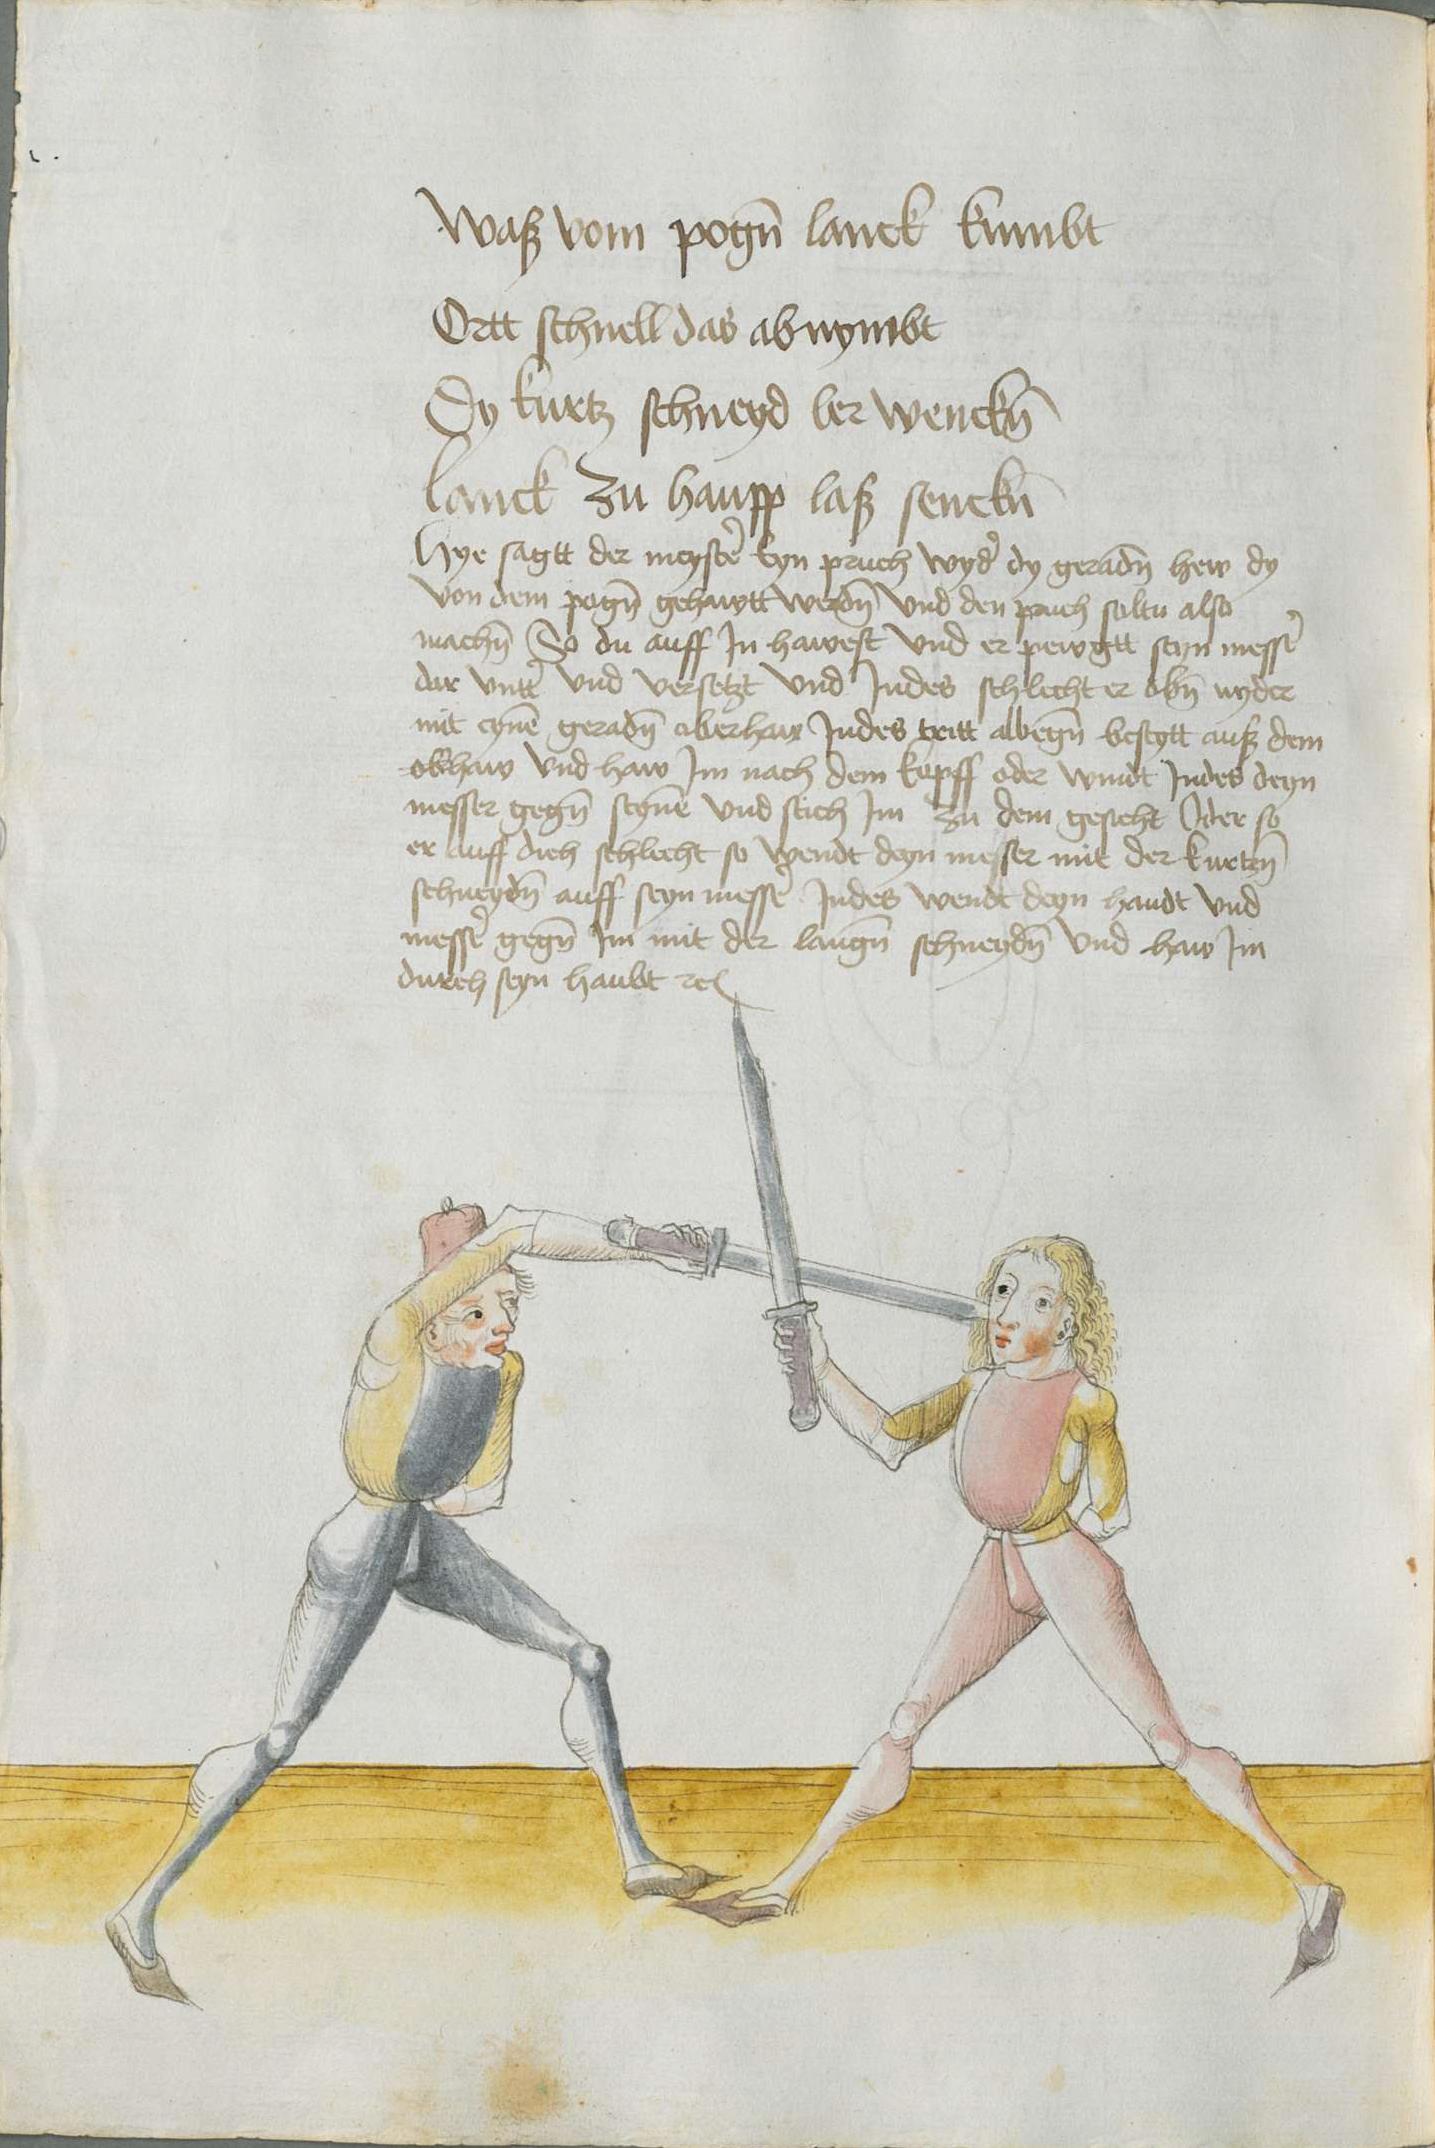 Waß vom pogn̄ lanck kumbt
Ortt schnell das ab nymbt
Dy kurtz schneyd ver wenckn̄
lanck zu haupp laß senckn̄
Hye sagtt der meyster eyn pruch wyder dy geradn̄ hew dy
von dem pogn̄ gehawtt werdn̄ vnd den pruch soltu also
machn̄ So du auff In hawest vnd er pewgtt seyn messer
dar vntter vnd versetzt vnd Indes schlecht er obn̄ nyder
mit eynē geradn̄ oberhaw Indes tritt albegn̄ beseytt auß dem
obhaw vnd haw Im nach dem kopff oder windt Indes deyn
messer gegn̄ seynē vnd stich Im zu dem gesicht Oder so
er auff dich schlecht so wendt deyn messer mit der kurtzn̄
schneydn̄ auff seyn messer Indes wendt deyn handt vnd
messer gegn̄ Im mit der langn̄ schneydn̄ vnd haw Im
durch seyn haubt ⁊c